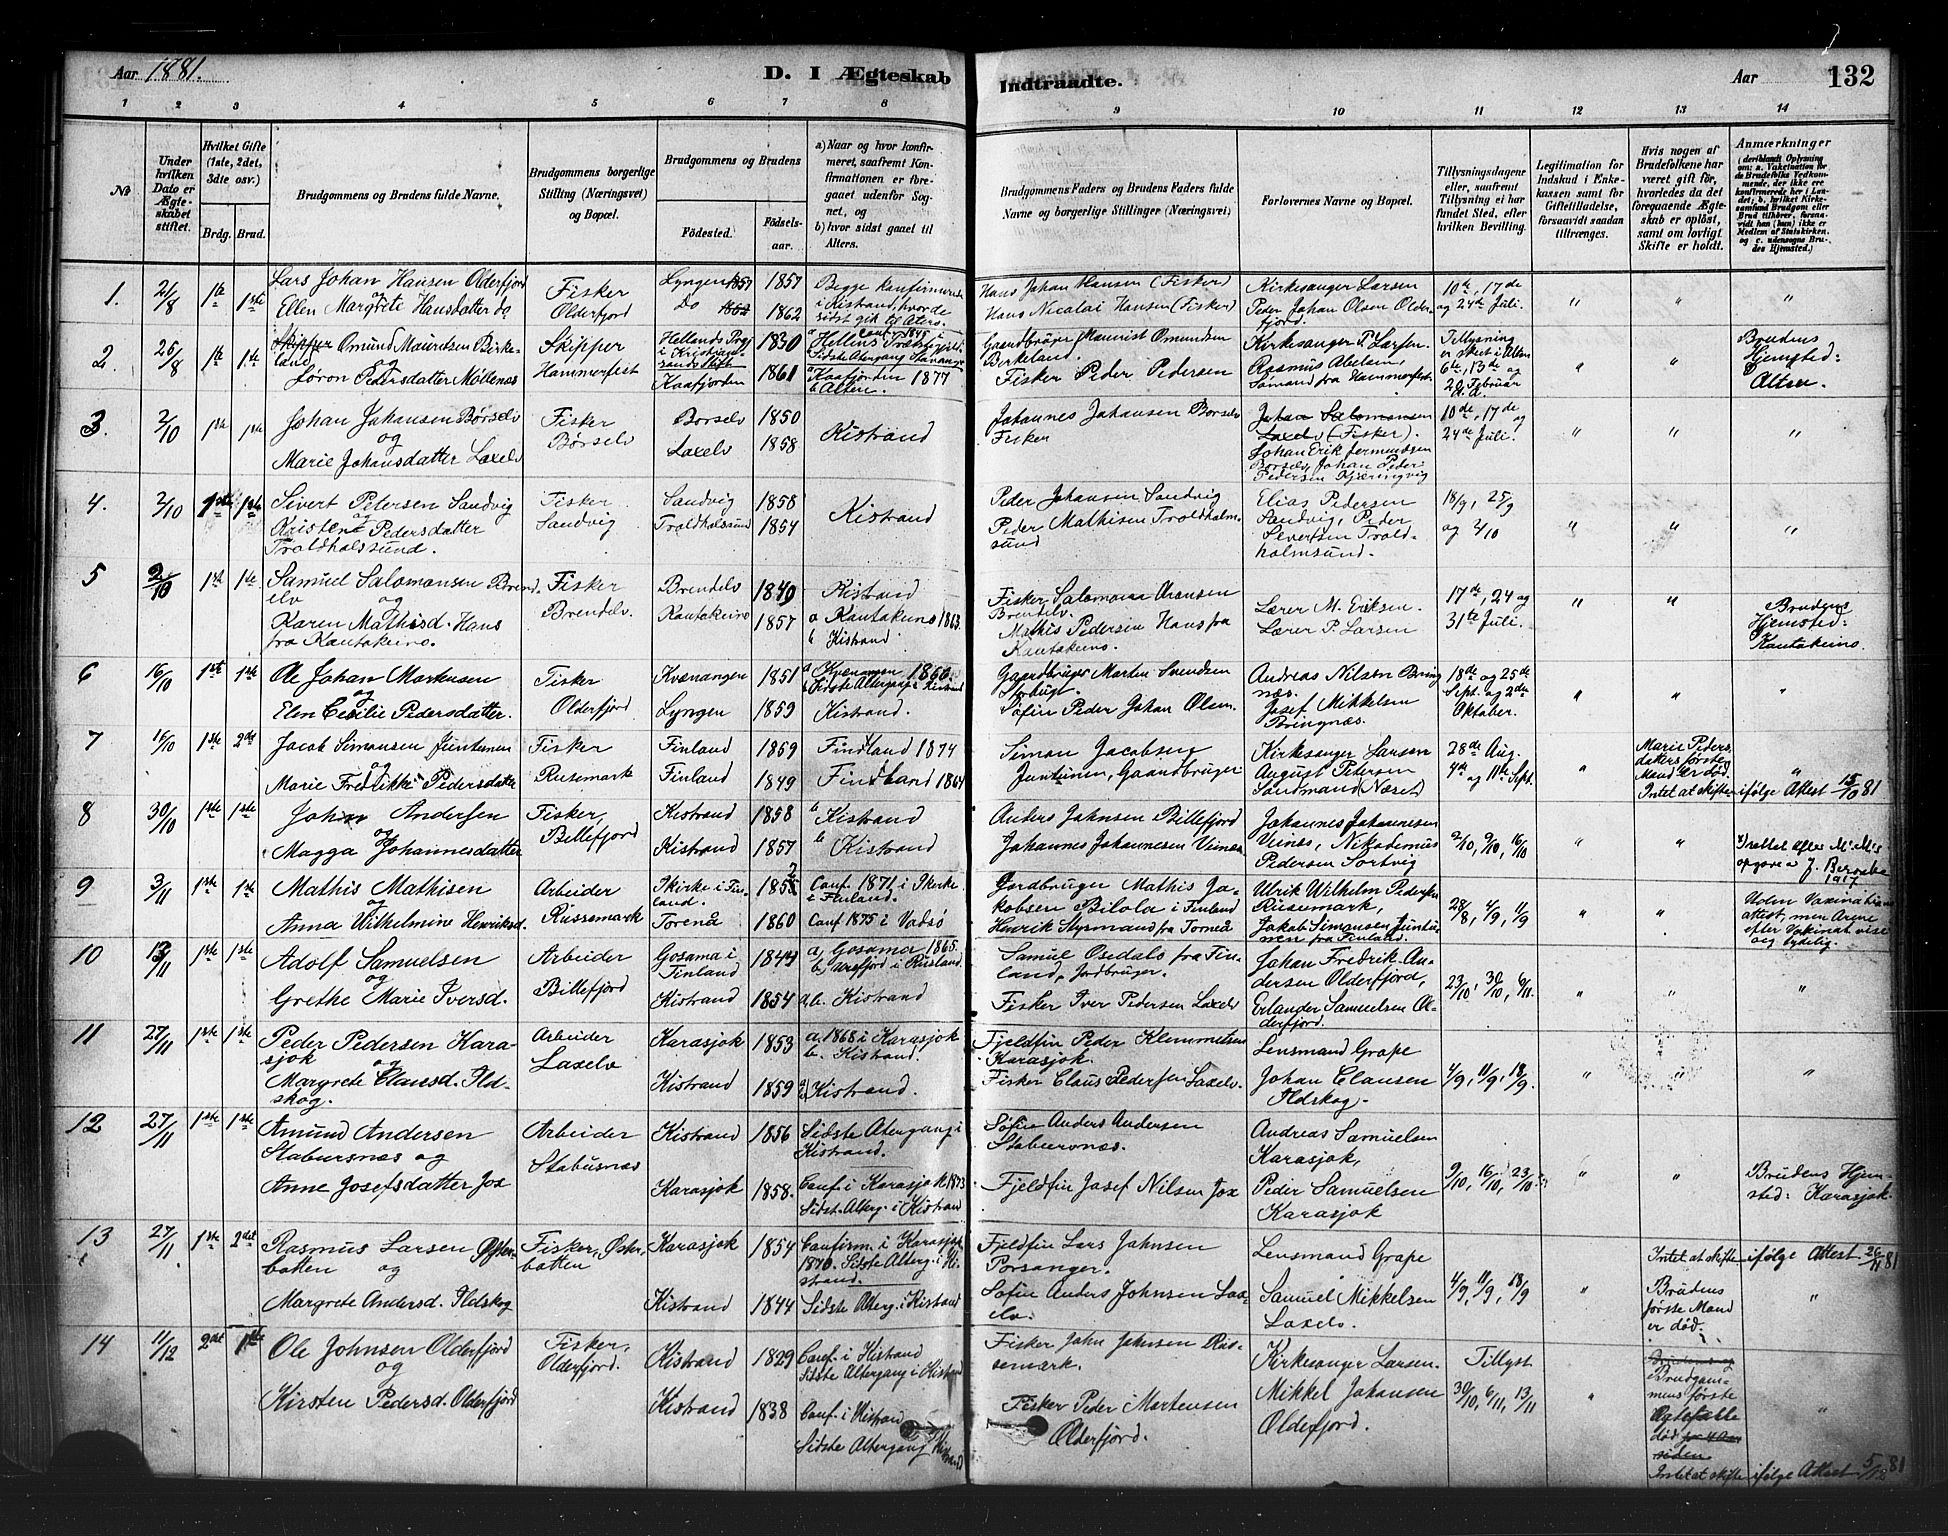 Aar 1881.
D. I Ægteskab
Indtraadte.
Aar
132
1 2 3 4 5 6 7 8 9 10 11 12 13 14
No
Under hvilken Dato er Ægteskabet stiftet.
Hvilket Gifte (1ste, 2det, 3dte osv.)
Brdg. Brud.
Brudgommens og Brudens fulde Navne.
Brudgommens borgerlige Stilling (Næringsvei) og Bopæl.
Brudgommens og Brudens
Fødested.
Fødselsaar.
a) Naar og hvor konfirmeret, saafremt Konfirmationen er foregaaet udenfor Sognet, og
b) hvor sidst gaaet til Alters.
Brudgommens Faders og Brudens Faders fulde Navne og borgerlige Stillinger (Næringsvei)
Forlovernes Navne og Bopæl.
Tillysningsdagene eller, saafremt Tillysning ei har fundet Sted, efter hvilken Bevilling.
Legitimation for Indskud i Enkekassen samt for Giftetilladelse, forsaavidt saadan tiltrænges.
Hvis nogen af Brudefolkene har været gift før, hvorledes da det foregaaende Ægteskab er opløst, samt om lovligt Skifte er holdt.
Anmærkninger
1. 21/8 1ste 1ste
Lars Johan Hansen Olderfjord
og
Ellen Margrete Hansdatter do
Fisker
Olderfjord
Lyngen 1857
Do 1862
Begge konfirmerede
i Kistrand, hvor de
sidst gik til Alters.
Hans Johan Hansen (Fisker)
Hans Nicolai Hansen (Fisker)
Kirkesanger Larsen
Peder Johan Olsen Olderfjord.
10de, 17de
og 24de Juli.
2. 28/8 1ste 1ste
Omund Mauritsen Birkeland
og
Søron Pedersdatter Møllenæs
Skipper
Hammerfest
Hellands Prgj
i Kristiansands Stift 1830
Kaafjorden 1861
Sidste Altergang Stavanger
a Kaafjorden 1877
b Alten.
Gaardbruger Maurist Omundsen
Birkeland.
Fisker Peder Pedersen
Kirkesanger P. Larsen.
Rasmus Abelsen
Sømand fra Hammerfest.
Tillysning
er skeet i Alten
6te, 13de og
20 Februar
d.d.
Brudens
Hjemsted-
Alten.
3. 2/10 1ste 1ste
Johan Johansen Børselv
og
Marie Johansdatter Laxelv
Fisker
Børselv
Børselv 1850
Laxelv 1858
Kistrand
Johannes Johansen Børselv
Fisker
Johan Salomonsen
Laxelv (Fisker).
Johan Erik
Børselv, Johan Peder
Pedersen Kjæringvig
10de, 17de og
24de Juli.
4. 2/10 1ste 1ste
Sivert Petersen Sandvig
og
Kristent Pedersdatter
Troldholssund.
Fisker
Sandvig
Sandvig 1858
Troldholsund 1854
Kistrand
Peder Johansen Sandvig
Peder Mathisen Troldholmsund
Elias Pedersen
Sandvig, Peder
Sivertsen Troldholmsund.
18/9, 25/9
og 2/10
5 2/10 1ste 1ste
Samuel Salomonsen Brendelv
og
Karen Mathisd. Hans
fra Kautokeino.
Fisker
Brendelv.
Brendelv 1849
Kautokeino 1857
Kistrand
a Kautokeino 1863.
b Kistrand
Fisker Salomon Aronsen
Brendelv.
Mathis Pedersen Hans fra
Kautokeino.
Lærer M. Eriksen.
Lærer P. Larsen
17de, 24 og
31te Juli.
Brudens
Hjemsted-
Kautokeino.
6 16/10 1ste 1ste
Ole Johan Martensen
og
Elen Cesilie Pedersdatter.
Fisker
Olderfjord
Kvænangen 1851
Lyngen 1859
a Kvænangen 1866.
b Sidste Altergang i Kistrand
Kistrand.
Gaardbruger Morten Svendsen
Søfin Peder Johan Olsen.
Andreas Nilsen Bringnæs.
Josef Mikkelsen
Bringnæs.
18de og 25de
Sept. og 2den
Oktober.
7 16/10 1ste 2det
Jacob Simonsen Juntunen
og
Marie Fredrikke Pedersdatter
Fisker
Russemark
Finland 1859
Finland 1849
Finland 1874
Finland 1864
Simon Jacobsen
Juntunen, Gaardbruger
Kirkesanger Larsen
August Petersen
Sandmand (Næset)
28de Aug.
4de og 11te Sept.
Marie Pedersdatters første
Mand er død.
Intet at skifte ifølge Attest 15/10 81
8 30/10 1ste 1ste
Johan Andersen
og
Magga Johannesdatter
Fisker,
Billefjord
Kistrand 1858
Kistrand 1857
b Kistrand
b Kistrand
Anders Johnsen Billefjord
Johannes Johannesen Veinæs
Johannes Johannesen
Veinæs, Nikodemus
Pedersen Sortvig
2/10, 9/10, 16/10
9 3/11 1ste 1ste
Mathis Mathisen
og
Anna Wilhelmine Henriksd.
Arbeider
Russemark
Skirke i Finland. 1852
Torneå 1860
Conf. 1871 i Skirke
i Finland.
Conf 1875 i Vadsø
Jordbruger Mathis Jakobsen Bilola i Finland
Henrik Styrmand fra Torneå
Ulrik Wilhelm Pedersen
Rusemark,
Jakob Simonsen Juntunen fra Finland.
28/8, 4/9, 11/9
Uden Vaxinationsattest, men Arene
efter Vakinat. vise
sig tydelig.
10 13/11 1ste 1ste
Adolf Samuelsen
og
Grethe Marie Iversd.
Arbeider
Billefjord
Gosama i
Finland 1844
Kistrand 1854
a. Gosama 1865.
a.b. Kistrand
Samuel Osedals fra Finland, Jordbruger.
Fisker Iver Pedersen Laxelv
Johan Fredrik Andersen Olderfjord,
Erlander Samuelsen Olderfjord.
23/10, 30/10, 6/11.
11 27/11 1ste 1ste
Peder Pedersen Karasjok
og
Margrete Clausd. Ildskog.
Arbeider
Laxelv
Karasjok 1853
Kistrand 1859
a. 1868 i Karasjok
b. Kistrand.
a b Kistrand.
Fjeldfin Peder Klemmetsen
Karasjok.
Fisker Claus Pedersen Laxelv.
Lensmand Grape
Johan Clausen
Ildskog.
4/9, 11/9, 18/9.
12 27/11 1ste 1ste
Amund Andersen
Stabursnæs og
Anne Josefsdatter Jox
Arbeider
Stabusnæs
Kistrand 1856
Karasjok 1858.
Sidste Altergang i
Kistrand.
Conf. i Karasjok 1873
Sidst. Alterg. i Kistrand
Søfin Anders Andersen
Stabursnæs.
Fjeldfin Josef Nilsen Jox
Andreas Samuelsen
Karasjok,
Peder Samuelsen
Karasjok
9/10, 16/10, 23/10.
Brudens Hjemsted: Karasjok.
13 27/11 1ste 2det
Rasmus Larsen Østerbotten og
Margrete Andersd. Ildskog
Fisker, Østerbotten
Karasjok 1854
Kistrand 1844
Confirm. i Karasjok
1870. Sidste Alterg. i Kistrand.
Sidste Alterg. i Kistrand
Fjeldfin Lars Johnsen
Porsanger.
Søfin Anders Johnsen Laxelv.
Lensmand Grape
Samuel Mikkelsen
Laxelv.
4/9, 11/9, 18/9
Intet at skifte ifølge Attest 26/11 81
Brudens
første Mand
er død.
14 11/12 2det 1ste
Ole Johnsen Olderfjord
og
Kirsten Pedersd. Olderfjord
Fisker,
Olderfjord.
Kistrand 1829
Kistrand 1838
Conf. i Kistrand
Sidste Altergang i Kistrand
Conf. i Kistrand
Sidste Altergang Kistrand
Fisker John Johnsen Russemark.
Fisker Peder Mortensen
Olderfjord.
Kirkesanger Larsen.
Mikkel Johansen
Olderfjord.
Tillyst
30/10, 6/11, 13/11
Brudgommens første
Ægtefælle
død
Intet at skifte ifølge Attest 5/12 81